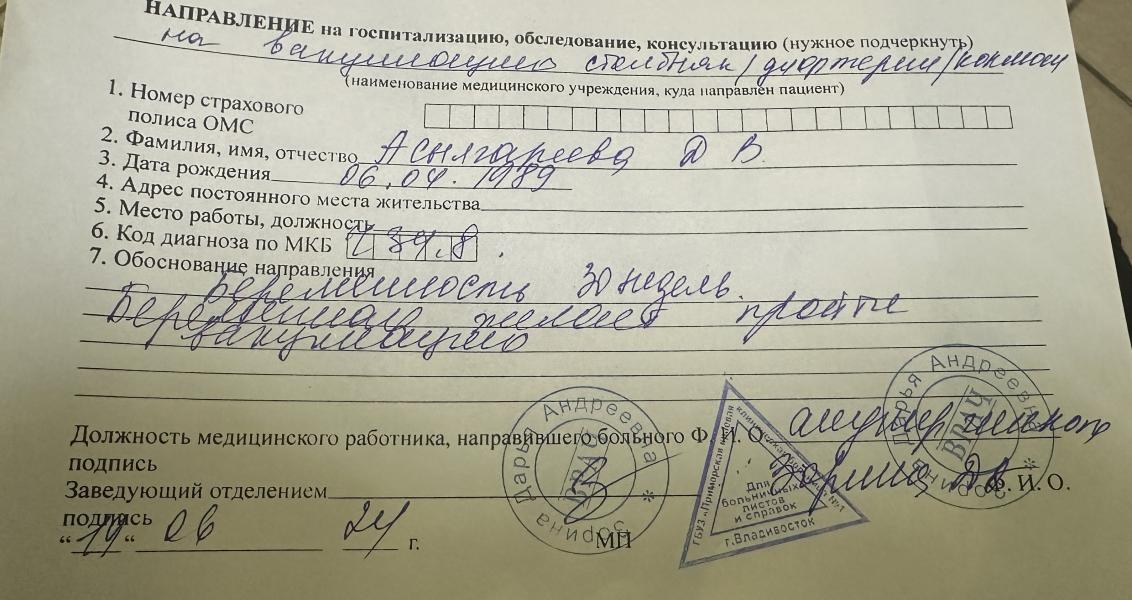 НАПРАВЛЕНИЕ на госпитализацию, обследование, консультацию (нужное подчеркнуть)
на вакцинацию столбняк/дифтерии/коклюш
(наименование медицинского учреждения, куда направлен пациент)
1. Номер страхового
полиса ОМС
2. Фамилия, имя, отчество Асылгареева Д В.
3. Дата рождения 06.04.1989
4. Адрес постоянного места жительства
5. Место работы, должность
6. Код диагноза по МКБ Z 34.8
7. Обоснование направления
Беременность 30 недель.
Беременная желает пройти
вакцинацию
Должность медицинского работника, направившего больного Ф. И. О. акушер гинеколог
подпись Зорина ДА
Заведующий отделением Ф. И. О.
подпись
“19“ 06 24 г.
МП
Зорина Дарья Андреевна *
ВРАЧ
ГБУЗ «Приморская краевая клиническая больница №1
Для
больничных
листов
и справок
г.Владивосток
Зорина Дарья Андреевна *
ВРАЧ